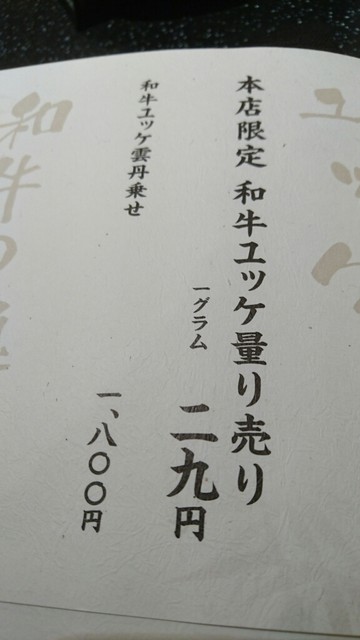 ユッケ
本店限定 和牛ユッケ量り売り
一グラム
二九円
和牛ユッケ雲丹乗せ
一、八〇〇円
和牛の